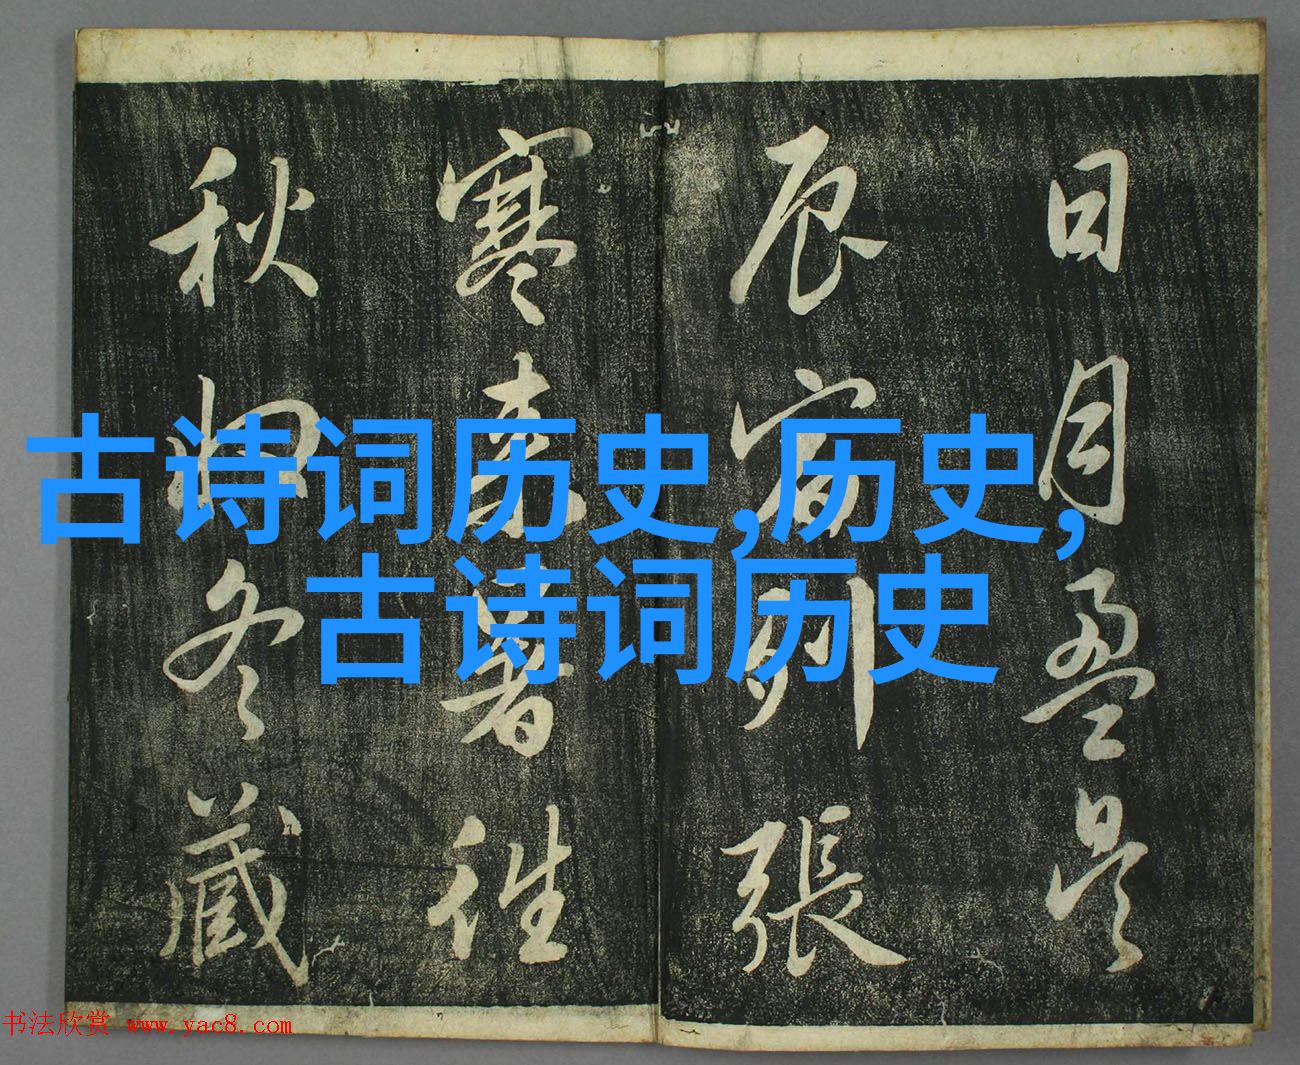 古诗词历史,历史,
古诗词历史
日月盈昃
辰宿列張
寒来暑往
秋收冬藏
书法欣赏 www.yac8.com